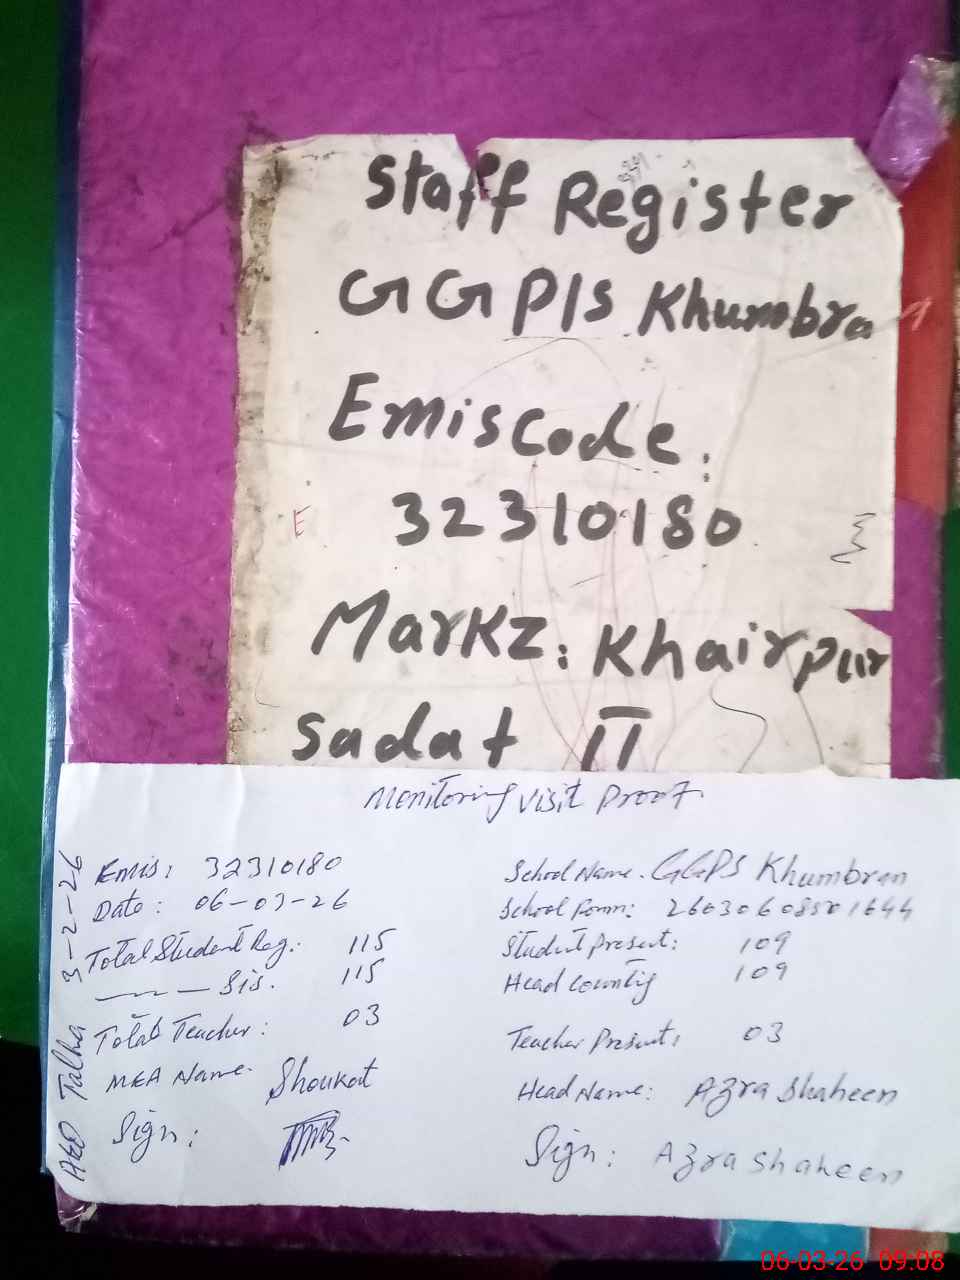 Staff Register
GGP/S Khumbra
Emiscode:
32310180
E
Markz: Khairpur
Sadat II
Monitoring Visit Proof
Emis: 32310180
School Name. GGPS Khumbran
Date: 06-03-26
School Form:
Total Student Reg: 115
Student present: 109
Sis. 115
Head Counting 109
Total Teacher: 03
Teacher Present: 03
MEA Name. Shoukat
Head Name: Azra Shaheen
Sign:
Sign: Azra Shaheen
AEO Talha 3-2-26
06-03-26 09:08